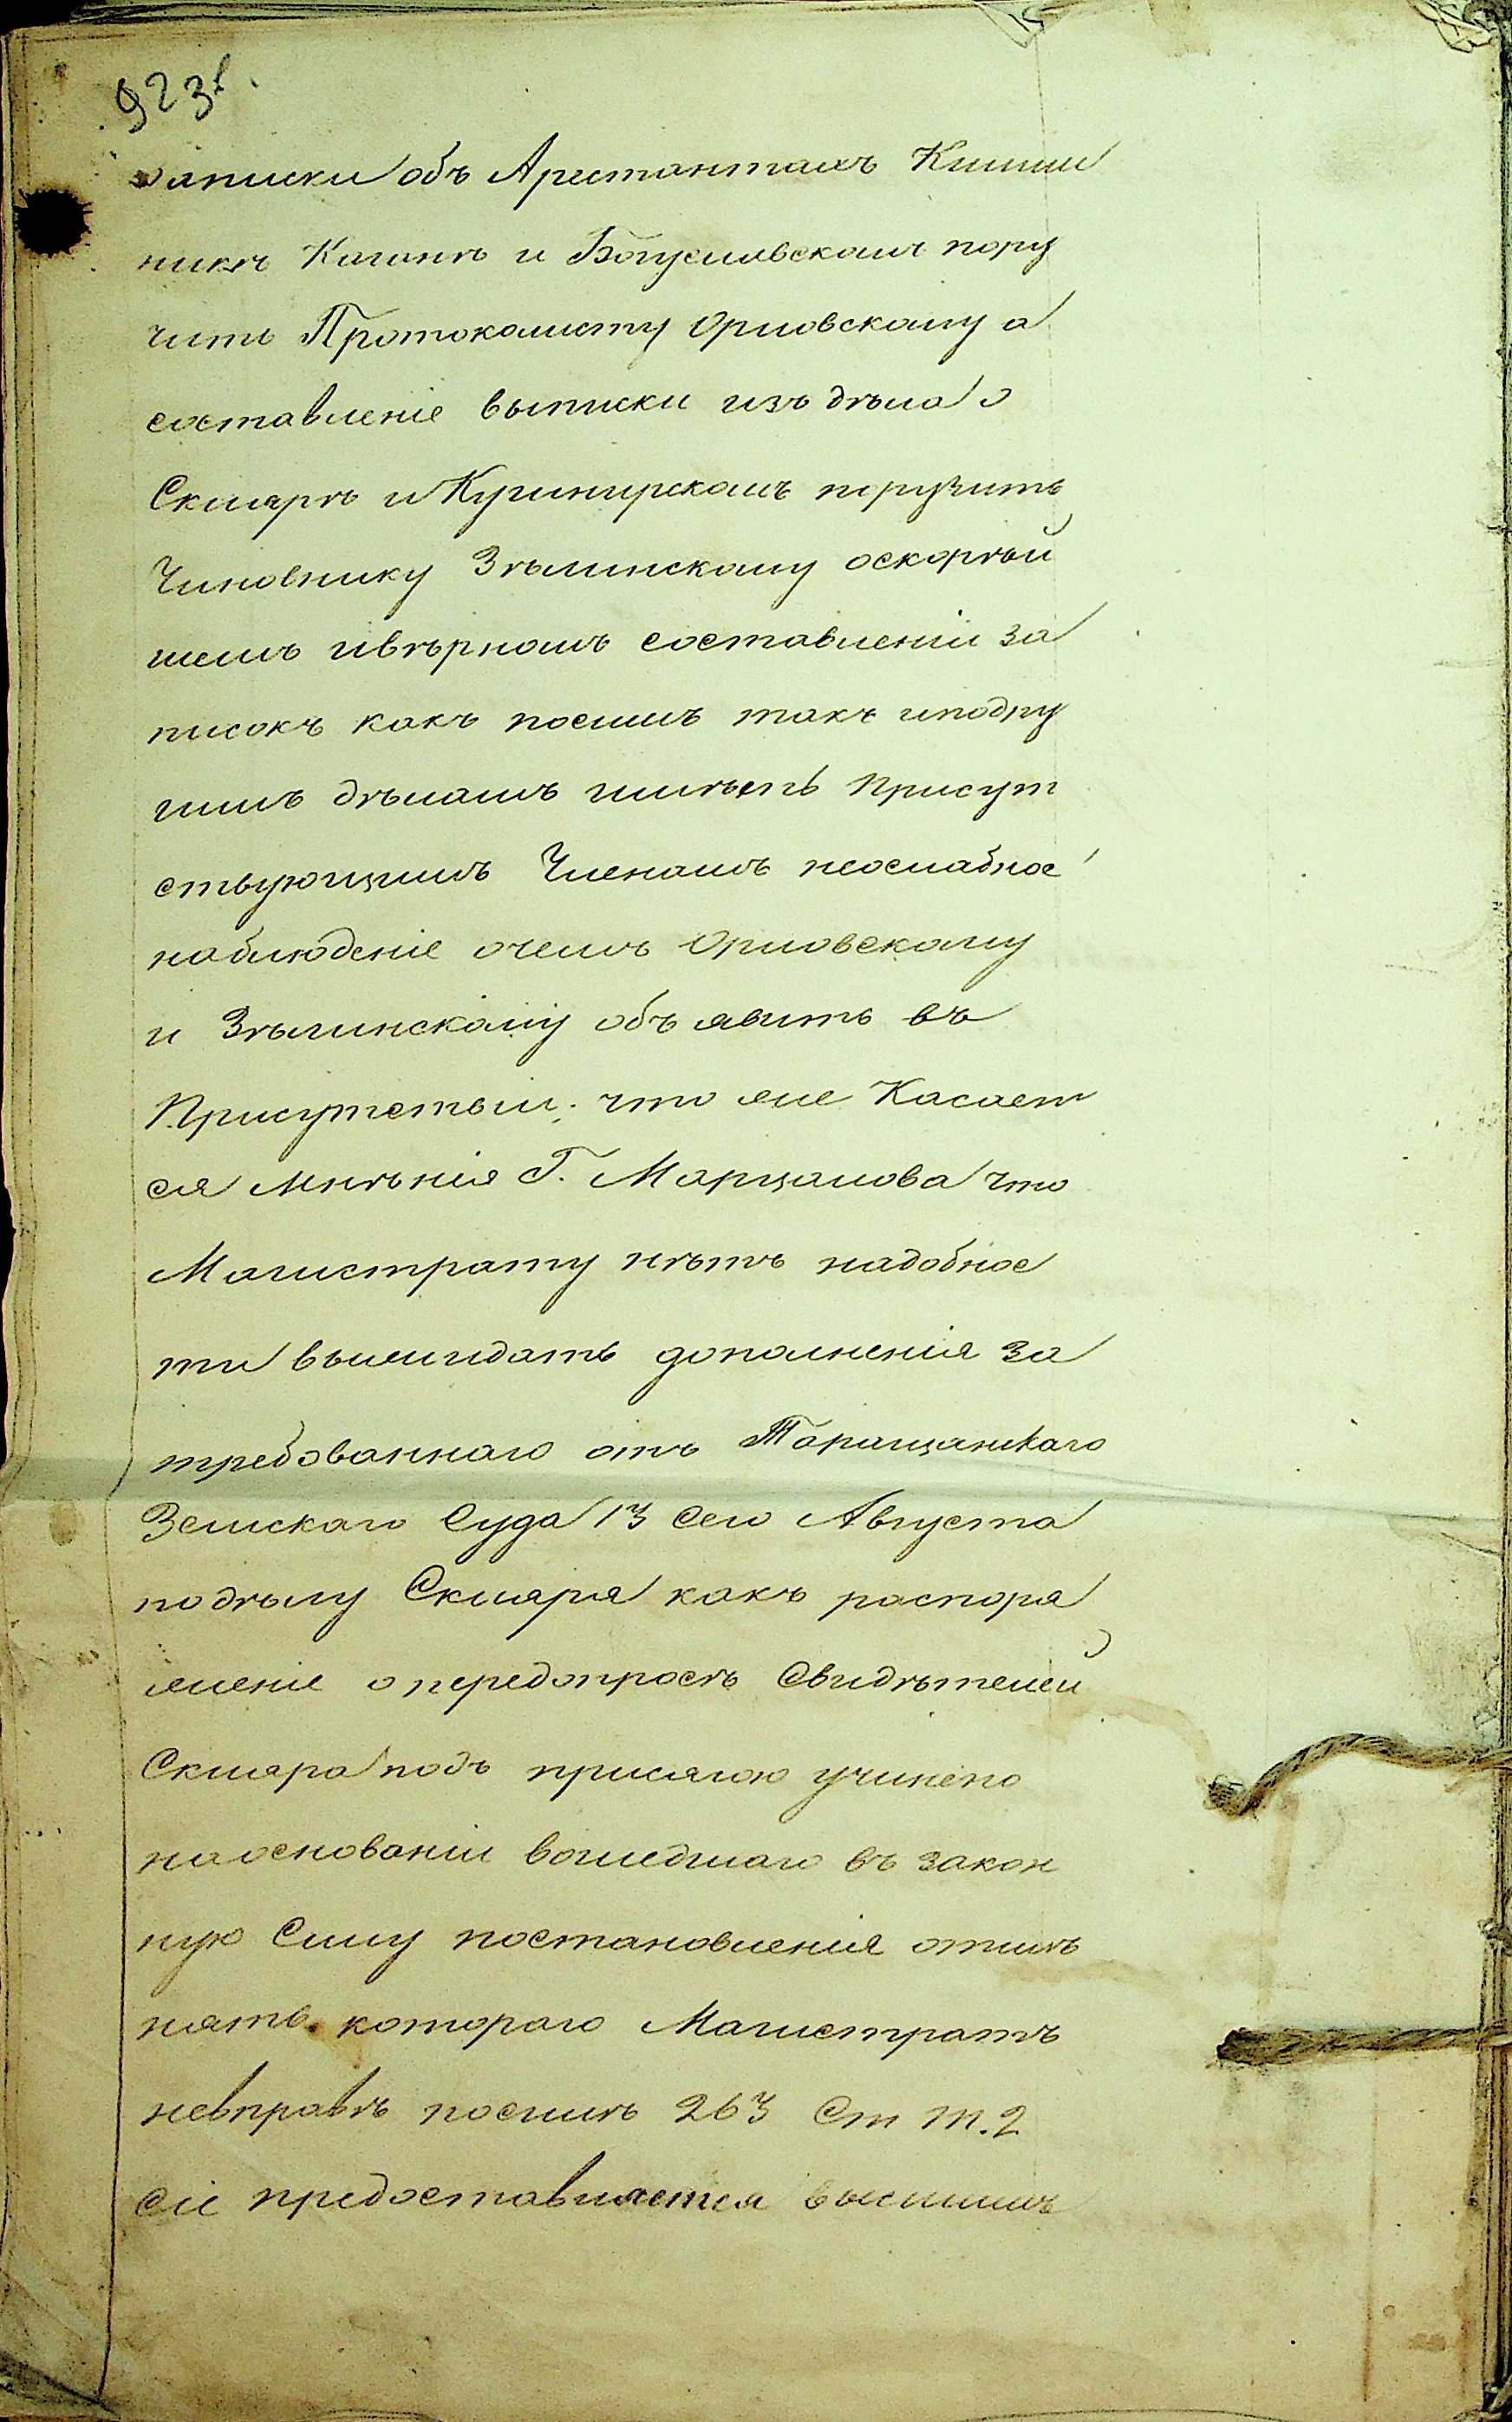 923
записки объ Арестантахъ Книш
никъ Каганъ и Богуславскомъ пору
чить Протоколисту Орловскому а
составленіе выписки изъ дѣла о
Скляръ и Кушнирскомъ поручить
Чиновнику Зѣлинскому оскорѣй
шемъ ивѣрномъ составленіи за
писокъ какъ посимъ такъ иподру
гимъ дѣламъ имѣеть Присут
ствующимъ Членамъ неослабное
наблюденіе очемъ Орловскому
и Зѣлинскому объявить въ
Присутствіи; что же Касает
ся мнѣнія Г. Марцалова что
Магистрату нѣтъ надобнос
ти выжидать дополненія за
требованнаго отъ Таращанскаго
Земскаго Суда 13 сего Августа
подѣлу Скляра какъ распоря
женіе опередопросѣ Свидѣтелей
Скляра подъ присягою учинено
наоснованіи вошедшаго въ закон
ную Силу постановленія отмѣ
нять котораго Магистратъ
невправѣ посилѣ 263 Ст т. 2
Сіе предоставляется высшимъ